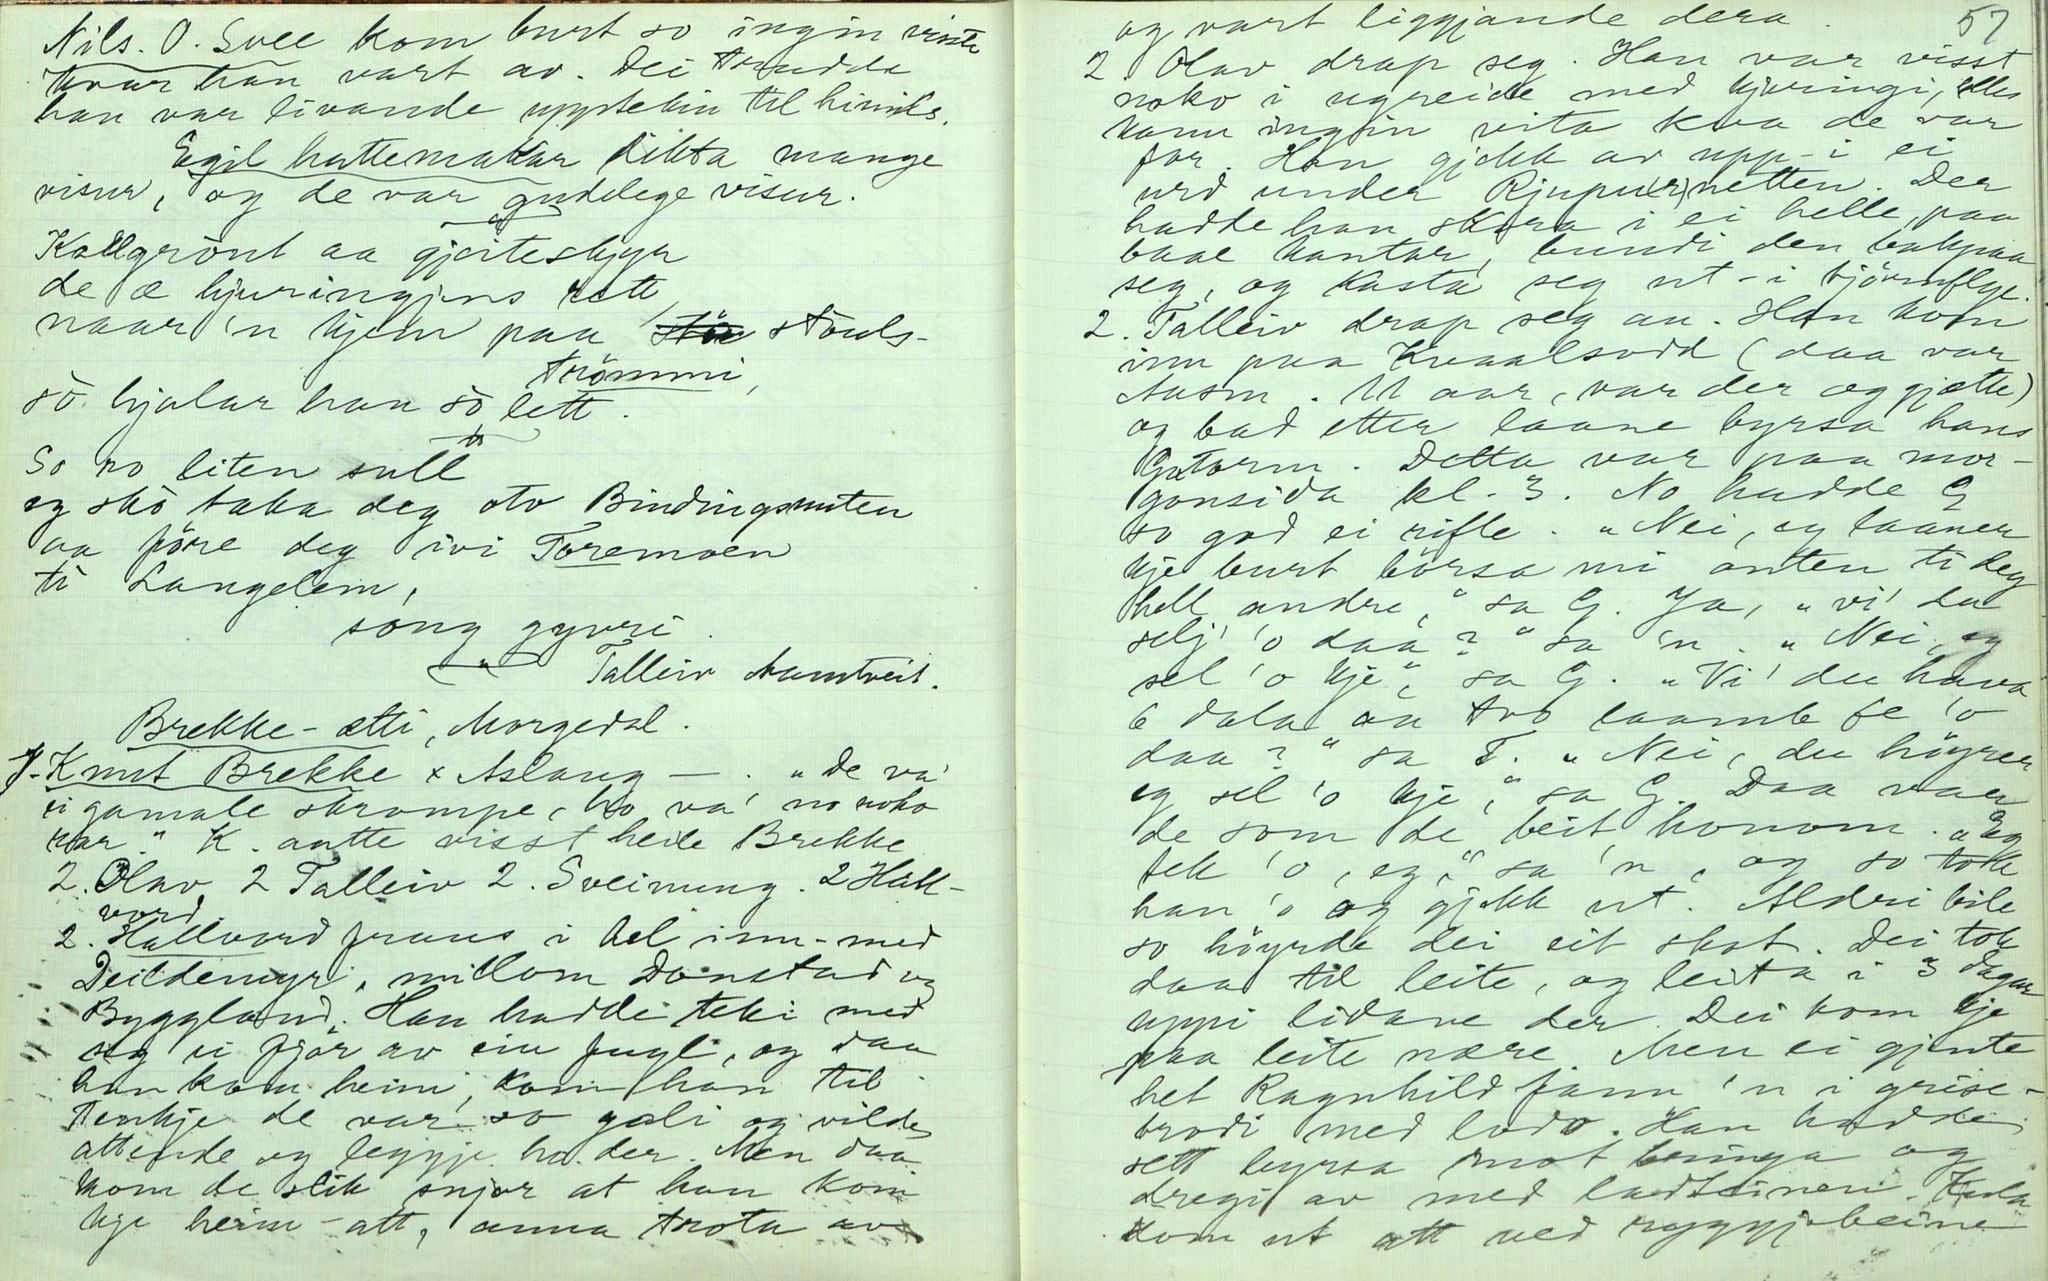 Nils. O. Svee kom burt so ingin visste
kvar han vart av. Dei trudde
han var livande uppteken til himils.
Egil hattemakar dikta mange
visur, og de var gudelege visur.
Kallgrönt aa gjeiteskjyr
de æ hjuringjens rett
naar 'n kjem paa stöuls-
trömmi,
so hjalar han so lett.
So ro liten sull
eg sko taka deg oto Bindingsnuten
aa före deg ivi Toremoen
ti Langelem,
song gyvri.
Talleiv Aamtveit.
Brekke-ætti, Morgedal.
1. Knut Brekke x Aslaug — . "De va'
ei gamale skrompe, ho va' no noko
rar." K. aatte visst heile Brekke
2. Olav 2 Talleiv 2. Sveinung. 2 Hall-
vord
2. Hallvord fraus i hel inn-med
Deildemyr, millom Dönstad og
Byggland. Han hadde teki med
seg ei fjör av ein fugl, og daa
han kom heim, kom han til
tenkje de var so gali og vilde
attende og leggje ho der. Men daa
kom de slik snjor at han kom
kje heim-att, anna trota av
57
og vart liggjande dera.
2 Olav drap seg. Han var visst
noko i ugreide med kjeringi, elles
kann ingin vita kva de var
for. Han gjekk av upp-i ei
urd under Rjupu(r)netten. Der
hadde han skora i ei helle, paa
baae kantar, bundi den bakpaa
seg, og kasta seg ut-i björnflye.
2. Talleiv drap seg au. Han kom
inn paa Kvaalsodd (daa var
Aasm. 11 aar, var der og gjætte)
og bad etter laane byrsa hans
Gutorm. Detta var paa mor-
gonsida kl. 3. No hadde G
so god ei rifle. "Nei, eg laaner
kje burt börsa mi anten ti deg
hell andre," sa G. Ja, "vi' du
selj' 'o daa?" sa 'n. "Nei, eg
sel 'o kje", sa G. "Vi' du hava
6 dala aa tvo laamb fe 'o
daa?" sa T. "Nei, du höyrer
eg sel 'o kje," sa G. Daa var
de som de beit honom. "Eg
tek 'o, eg," sa 'n, og so tok
han 'o og gjekk ut. Aldri bile
so höyrde dei eit skot. Dei tok
daa til leite, og leita i 3 dagar
uppi lidane der. Dei kom kje
paa leite nære. Men ei gjente
het Ragnhild fann 'n i grise-
brodi med lodo. Han hadde
sett byrsa mot bringa og
dregi av med ladsteinen. Kula
kom ut att ved ryggjabeine